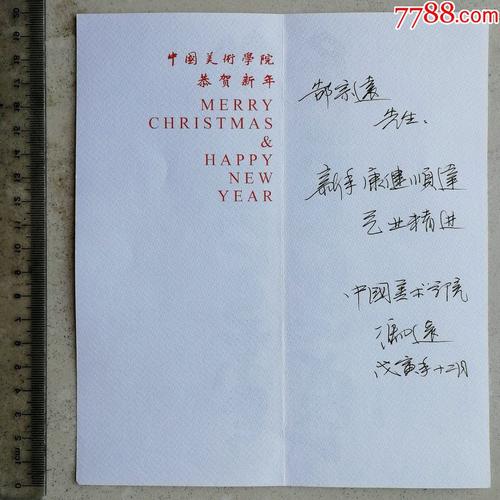 7788.com
中国美術學院
恭贺新年
MERRY
CHRISTMAS
&
HAPPY
NEW
YEAR
郜宗遠
先生.
新年康健順達
艺业精进
中國美术学院
馮远
戊寅年十二月